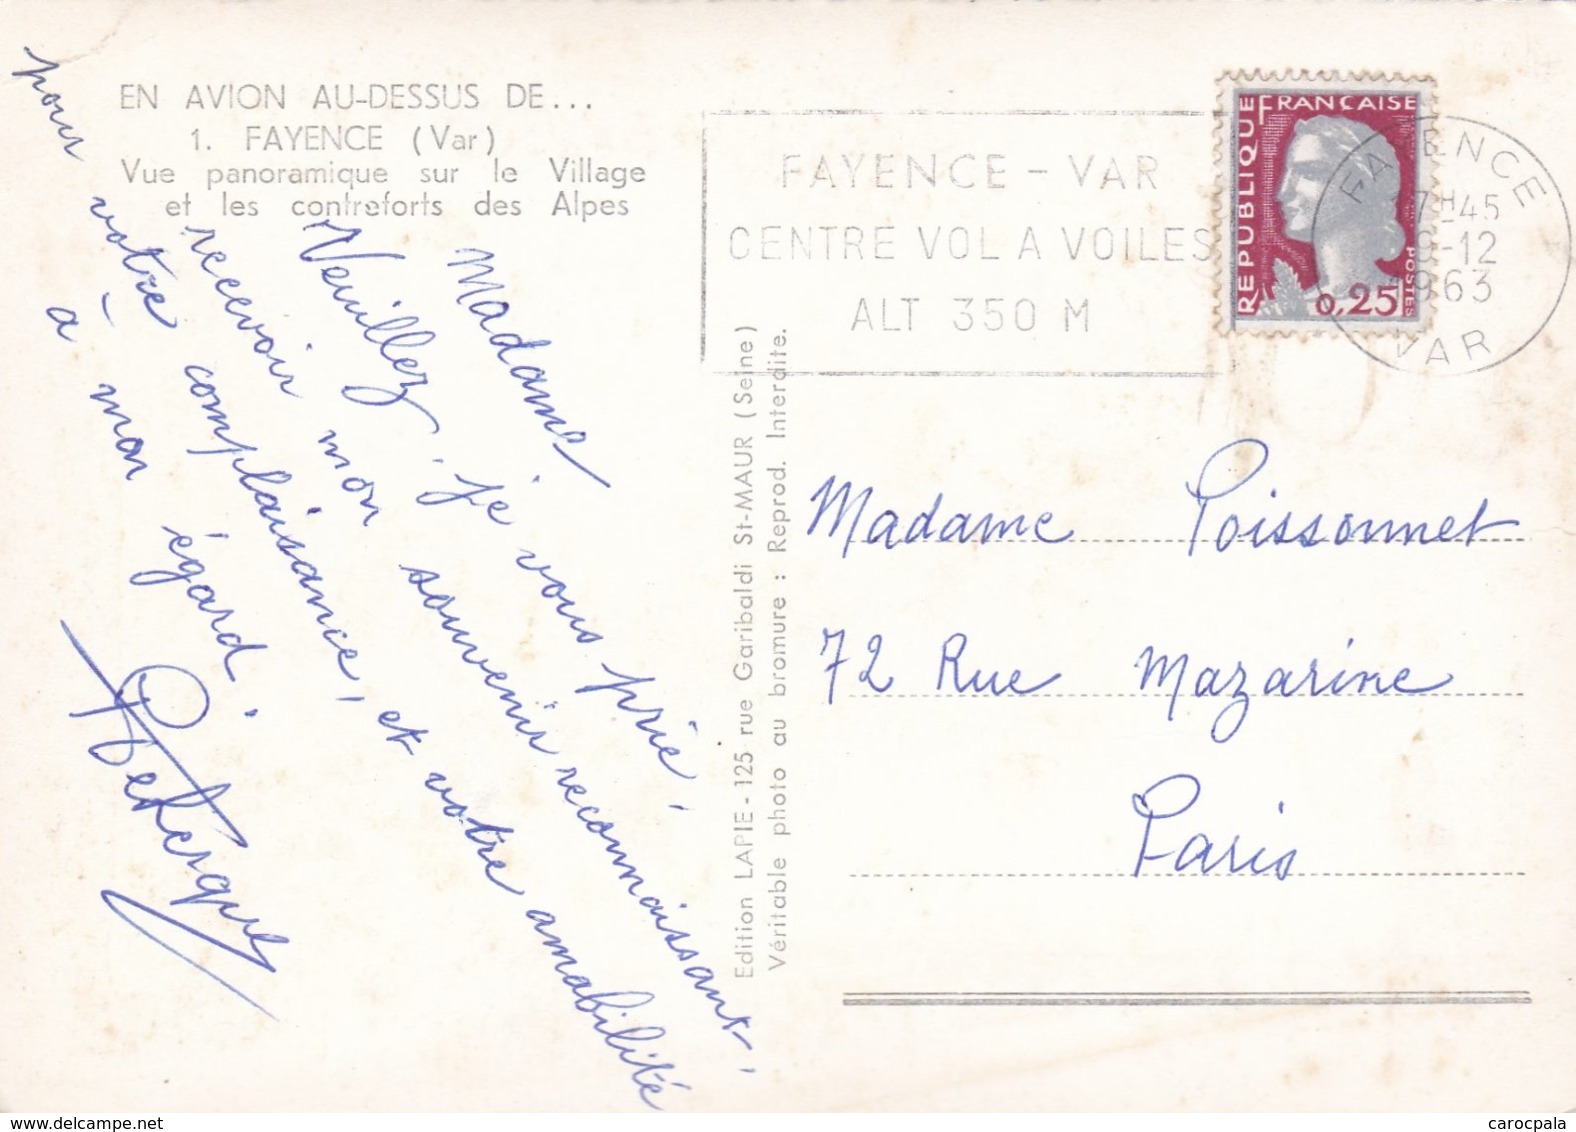 EN AVION AU-DESSUS DE...
1. FAYENCE (Var)
Vue panoramique sur le Village
et les contreforts des Alpes
Madame
Veuillez, je vous prie,
recevoir mon souvenir reconnaissant,
pour votre complaisance, et votre amabilité
à mon égard.
Edition LAPIE - 125 rue Garibaldi St-MAUR (Seine)
Véritable photo au bromure : Reprod. Interdite.
FAYENCE - VAR
CENTRE VOL A VOILES
ALT 350 M
REPUBLIQUE
FRANCAISE
POSTES
0,25
FAYENCE
7H45
9-12
1963
VAR
Madame Poissonnet
72 Rue Mazarine
Paris
carocpala